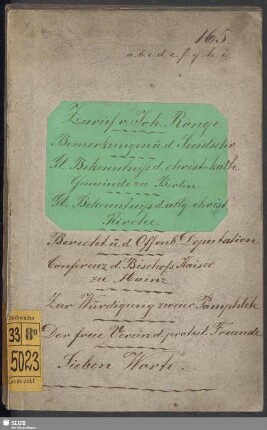 165
a. b. c. d. e. f. g. h. i.
Zuruf v. Joh. Ronge
Bemerkungen ü. d. Sendschr.
Gl. Bekenntniß d. christ-kath.
Gemeinde zu Berlin
Gl. Bekenntniß d. allg. christ.
Kirche.
Bericht ü. d. Offenb. Deputation
Conferenz d. Bischofs Kaiser
zu Mainz
Zur Würdigung zweier Pamphlete
Der freie Verein d. protest. Freunde
Sieben Worte.
33 8°
5023
SLUB